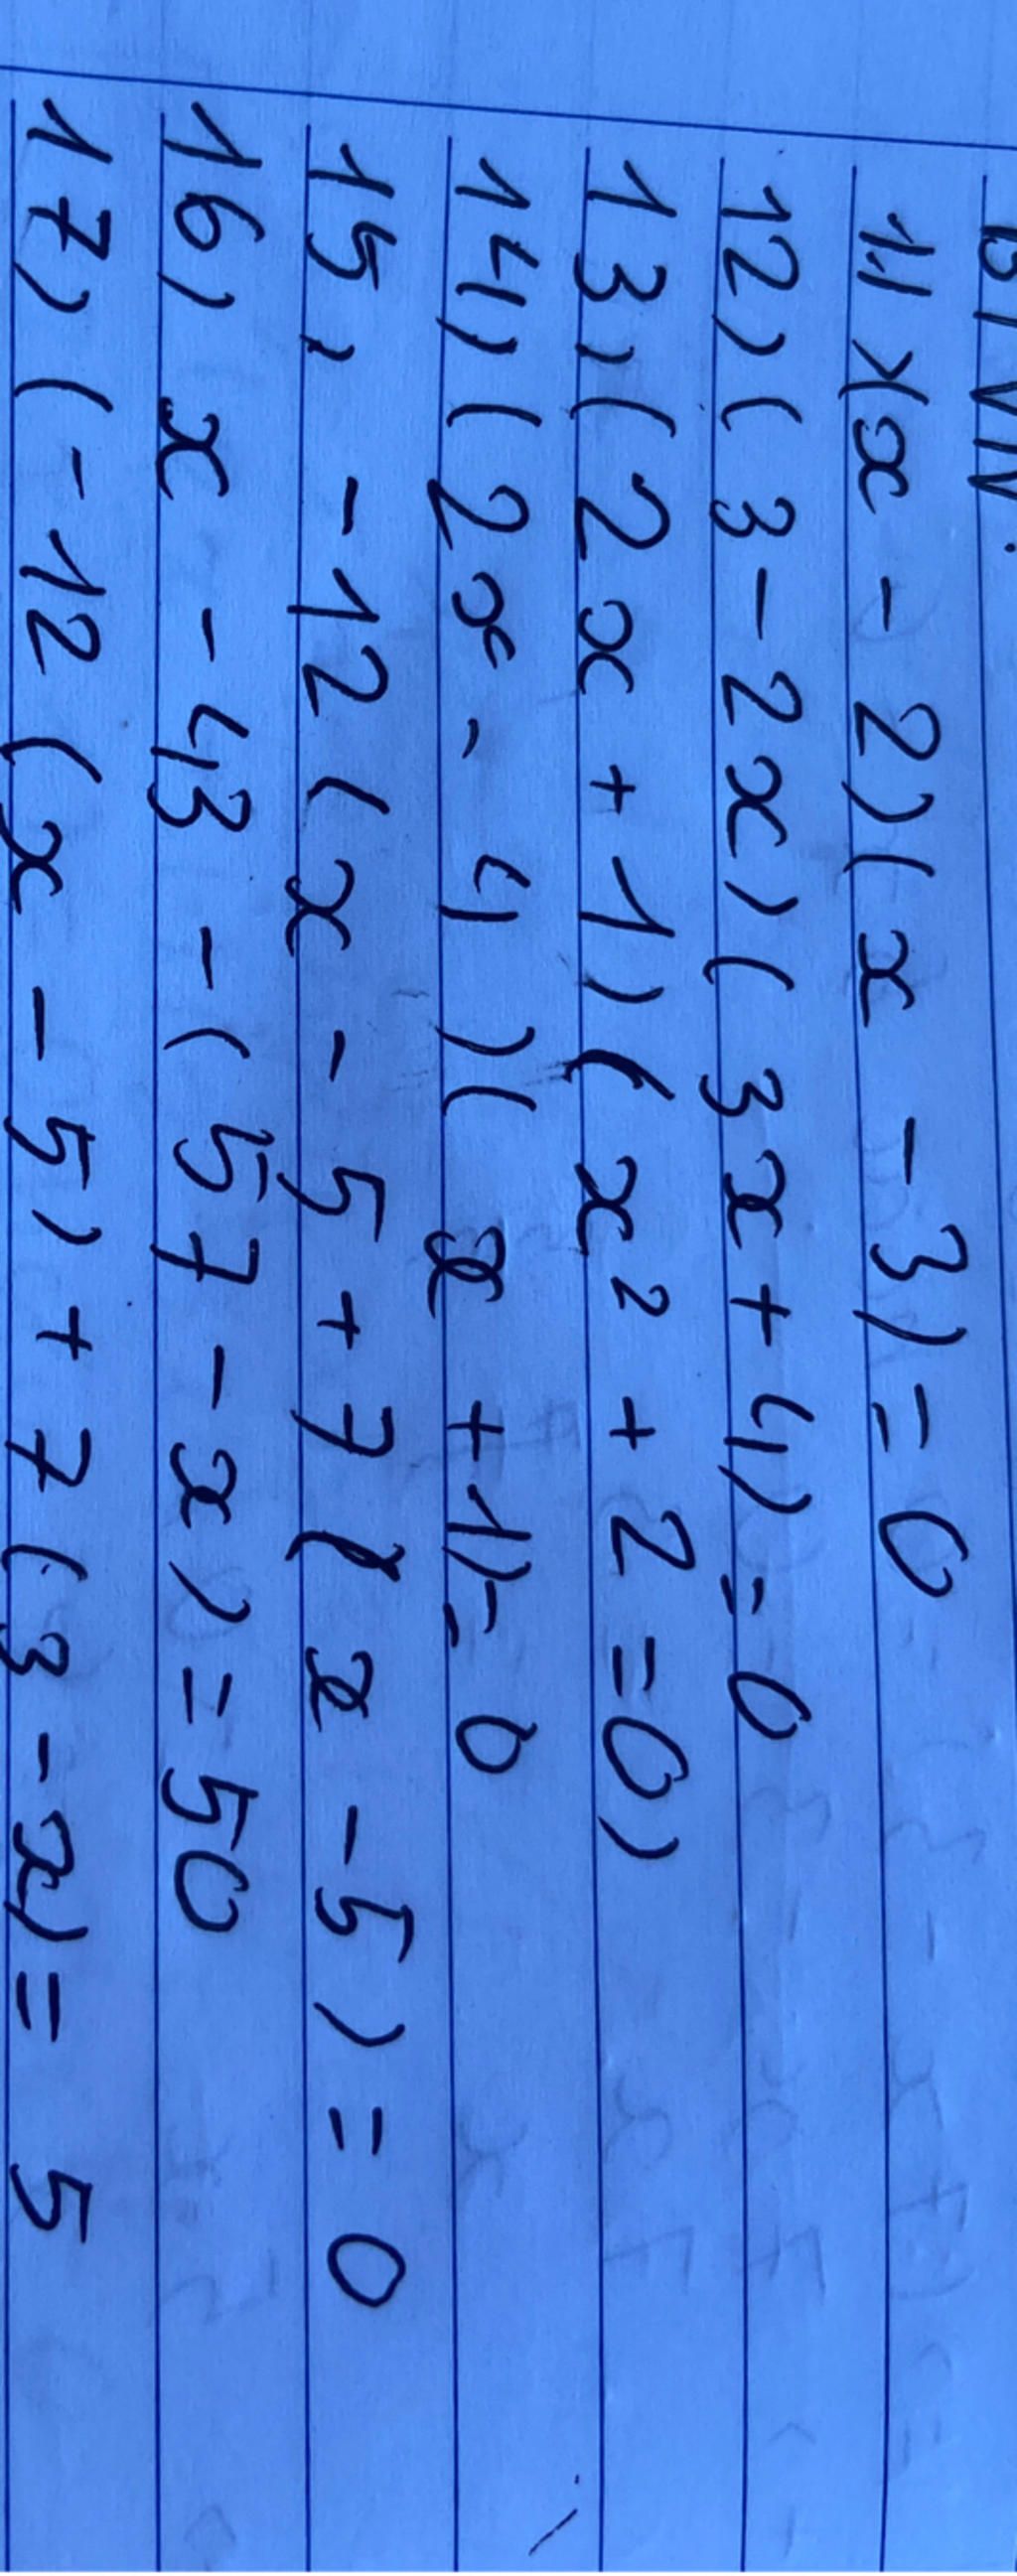 BTVN:
11) (x - 2)(x - 3) = 0
12) (3 - 2x)(3x + 4) = 0
13) (2x + 1)(x² + 2 = 0)
14) (2x - 4)(x + 1) = 0
15) -12(x - 5 + 7(x - 5) = 0
16) x - 43 - (57 - x) = 50
17) (-12(x - 5) + 7(3 - x) = 5